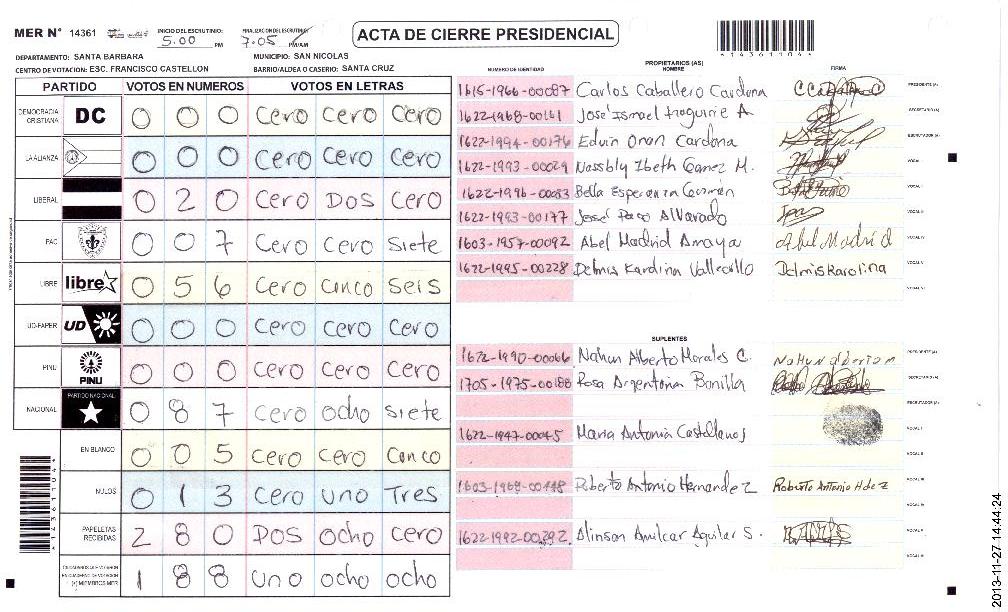 MER N° 14361 INICIO DEL ESCRUTINIO: 5.00 PM FINALIZACION DEL ESCRUTINIO: 7.05 PM/AM ACTA DE CIERRE PRESIDENCIAL
DEPARTAMENTO: SANTA BARBARA MUNICIPIO: SAN NICOLAS
CENTRO DE VOTACION: ESC. FRANCISCO CASTELLON BARRIO/ALDEA O CASERIO: SANTA CRUZ
PARTIDO VOTOS EN NUMEROS VOTOS EN LETRAS
DEMOCRACIA CRISTIANA DC 0 0 0 Cero Cero Cero
LA ALIANZA 0 0 0 Cero Cero Cero
LIBERAL 0 2 0 Cero Dos Cero
PAC 0 0 7 Cero Cero Siete
LIBRE libre 0 5 6 Cero Cinco Seis
UD-FAPER UD 0 0 0 Cero Cero Cero
PINU PINU 0 0 0 Cero Cero Cero
NACIONAL PARTIDO NACIONAL 0 8 7 Cero ocho Siete
EN BLANCO 0 0 5 Cero Cero Cinco
NULOS 0 1 3 Cero uno Tres
PAPELETAS RECIBIDAS 2 8 0 Dos ocho Cero
CIUDADANOS QUE VOTARON EN CUADERNO DE VOTACION (+) MIEMBROS MER 1 8 8 Uno ocho ocho
NUMERO DE IDENTIDAD PROPIETARIOS (AS) NOMBRE FIRMA
1615-1966-00087 Carlos Caballero Cardona PRESIDENTE (A)
1622-1968-00161 José Ismael Iraguirre A SECRETARIO (A)
1622-1994-00176 Edwin Onan Cardona ESCRUTADOR (A)
1622-1993-00029 Nassbly Ibeth Gamez M. VOCAL I
1622-1996-00083 Bella Esperanza Guzmán VOCAL II
1622-1993-00177 José Paco Alvarado VOCAL III
1603-1957-00092 Abel Madrid Amaya Abel Madrid VOCAL IV
1622-1995-00228 Delmis Karolina Vallecillo Delmis Karolina VOCAL V
VOCAL VI
SUPLENTES
1622-1990-00066 Nahun Alberto Morales C. Nahun alberto m PRESIDENTE (A)
1705-1975-00188 Rosa Argentina Bonilla SECRETARIO (A)
ESCRUTADOR (A)
1622-1947-00045 Maria Antonia Castellanos VOCAL I
VOCAL II
1603-1969-00448 Roberto Antonio Hernandez Roberto Antonio Hdez VOCAL III
1622-1992-00292 Alinson Amilcar Aguilar S. VOCAL V
VOCAL VI
2013-11-27 14:44:24